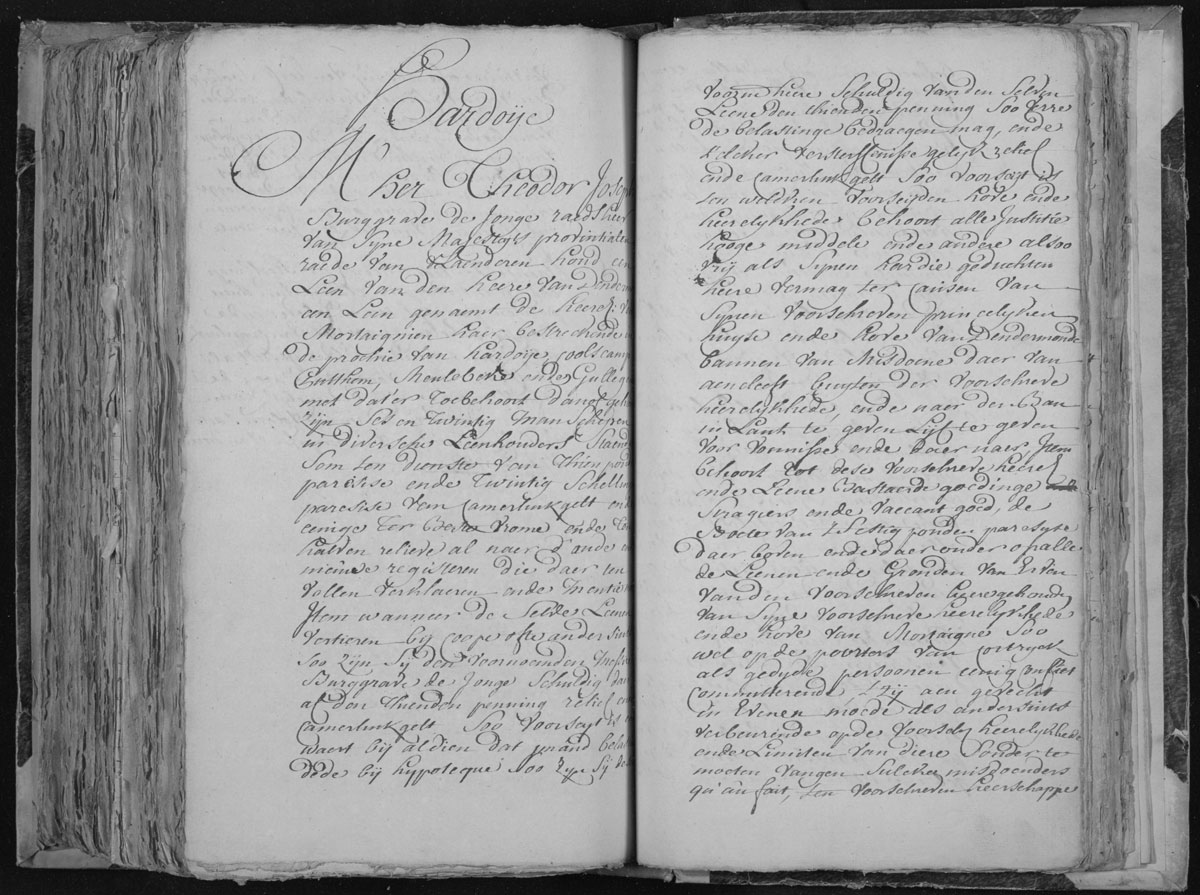 Hardoije
M'her Theodor Joseph
Burggrave de Jonge raedtsheer
van Syne Majesteyts provintialen
raede van Vlaenderen houd een
Leen van den heere van Dender
een Leen genaemt de heerel:
Mortaignien haer bestreckende
de prochie van hardoije, coolscamp
Meulebeke ende Gullegem
met dat er toebehoort danof gehouden
zijn Ses en twintig man Schepen
in diversche Leenhouders Staende
ten dienste van thien pond
parisise ende twintig Schellingen
paresise van Camerlinkgelt ende
eenige ter Bester vrome ende te
halven relieve al naer d'oude en
nieuwe registeren die daer ten
vollen verklaeren ende mentie
Item wanneer de Selve Leenen
vertieren bij coope ofte andersints
Soo Zijn Sij den voornoemden
Burggrave de Jonge Schuldig dan
af den thienden penning relief en
Camerlinkgelt Soo voorseyt is
waert bij aldien dat pand belast
dede bij hyppoteque Soo Zijn Sij de
voorn heere Schuldig van den Selven
Leene den thienden penning Soo verre
de belastinge bedraegen mag, ende
t'elcher versterffenisse gelyk relief
ende Camerlinkgelt Soo voorseyt is
ten welcken voorseyden hove ende
heerelykhede behoort alle Justitie
hooge middele ende andere alsoo
vrij als Synen hardie geduchten
heere vermag ter causen van
Synen voorschreven princelyken
huyse ende hove van Dendermonde
bannen van Misdoene daer van
aencleeft buyten der voorschreve
heerelykhede, ende naer den Ban
in Lant te geven Lijf te geven
voor vonnisse ende daer naer Item
behoort tot dese voorschreve heerel:
ende Leene Bastaerde goedinge
Stragiers ende vaccant goed, de
Boete van t'Sestig ponden parasyse
daer boven ende daer onder op alle
de Leenen ende Gronden van Erven
van den voorschreven heere gehouden
van Syne voorschreve heerelykhede
ende hove van Mortaigne Soo
wel op de poorters van Cortryck
als gedyde persoonen eenig conflict
committerende t'Zij aen gevecht
in Evenen moede als andersints
verbeurende op de voorsch: heerelykhede
ende Limiten van diere Sonder te
moeten vangen Sulcke misdoenders
qu'au fait, ten voorschreven heerschappe